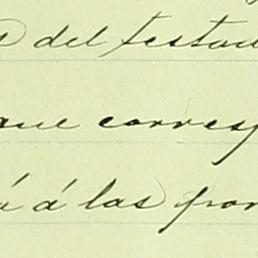 del testad
que corresp
á á las por